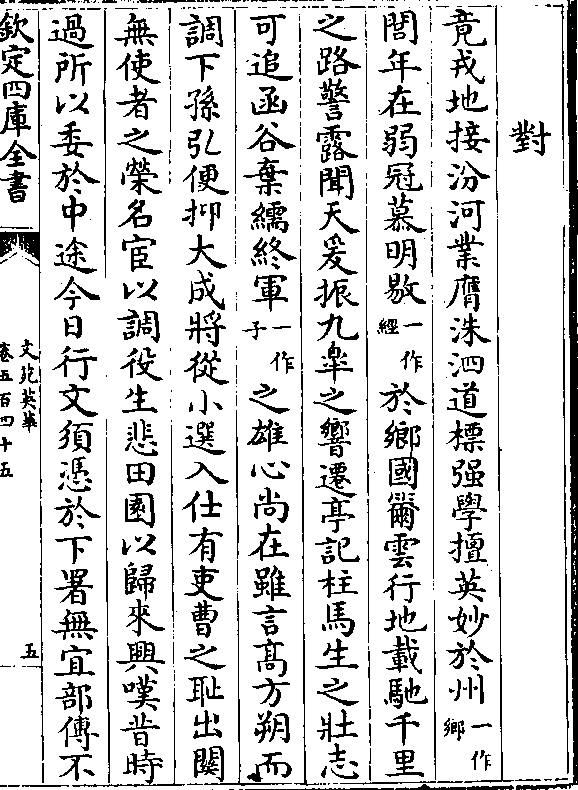 對
竟戎地接汾河業膺洙泗道標强學擅英妙於州一作鄉
閭年在弱冠慕明敭一作經於鄉國爾雲行地載馳千里
之路警露聞天爰振九臯之響遷亭記柱馬生之壯志
可追函谷棄繻終軍一作子之雄心尚在雖言髙方朔而
調下孫弘便抑大成將從小選入仕有吏曹之耻出關
無使者之榮名宦以調役生悲田園以歸來興嘆昔時
過所以委於中途今日行文須憑於下署無宜部傳不
欽定四庫全書
文苑英華
卷五百四十五
五